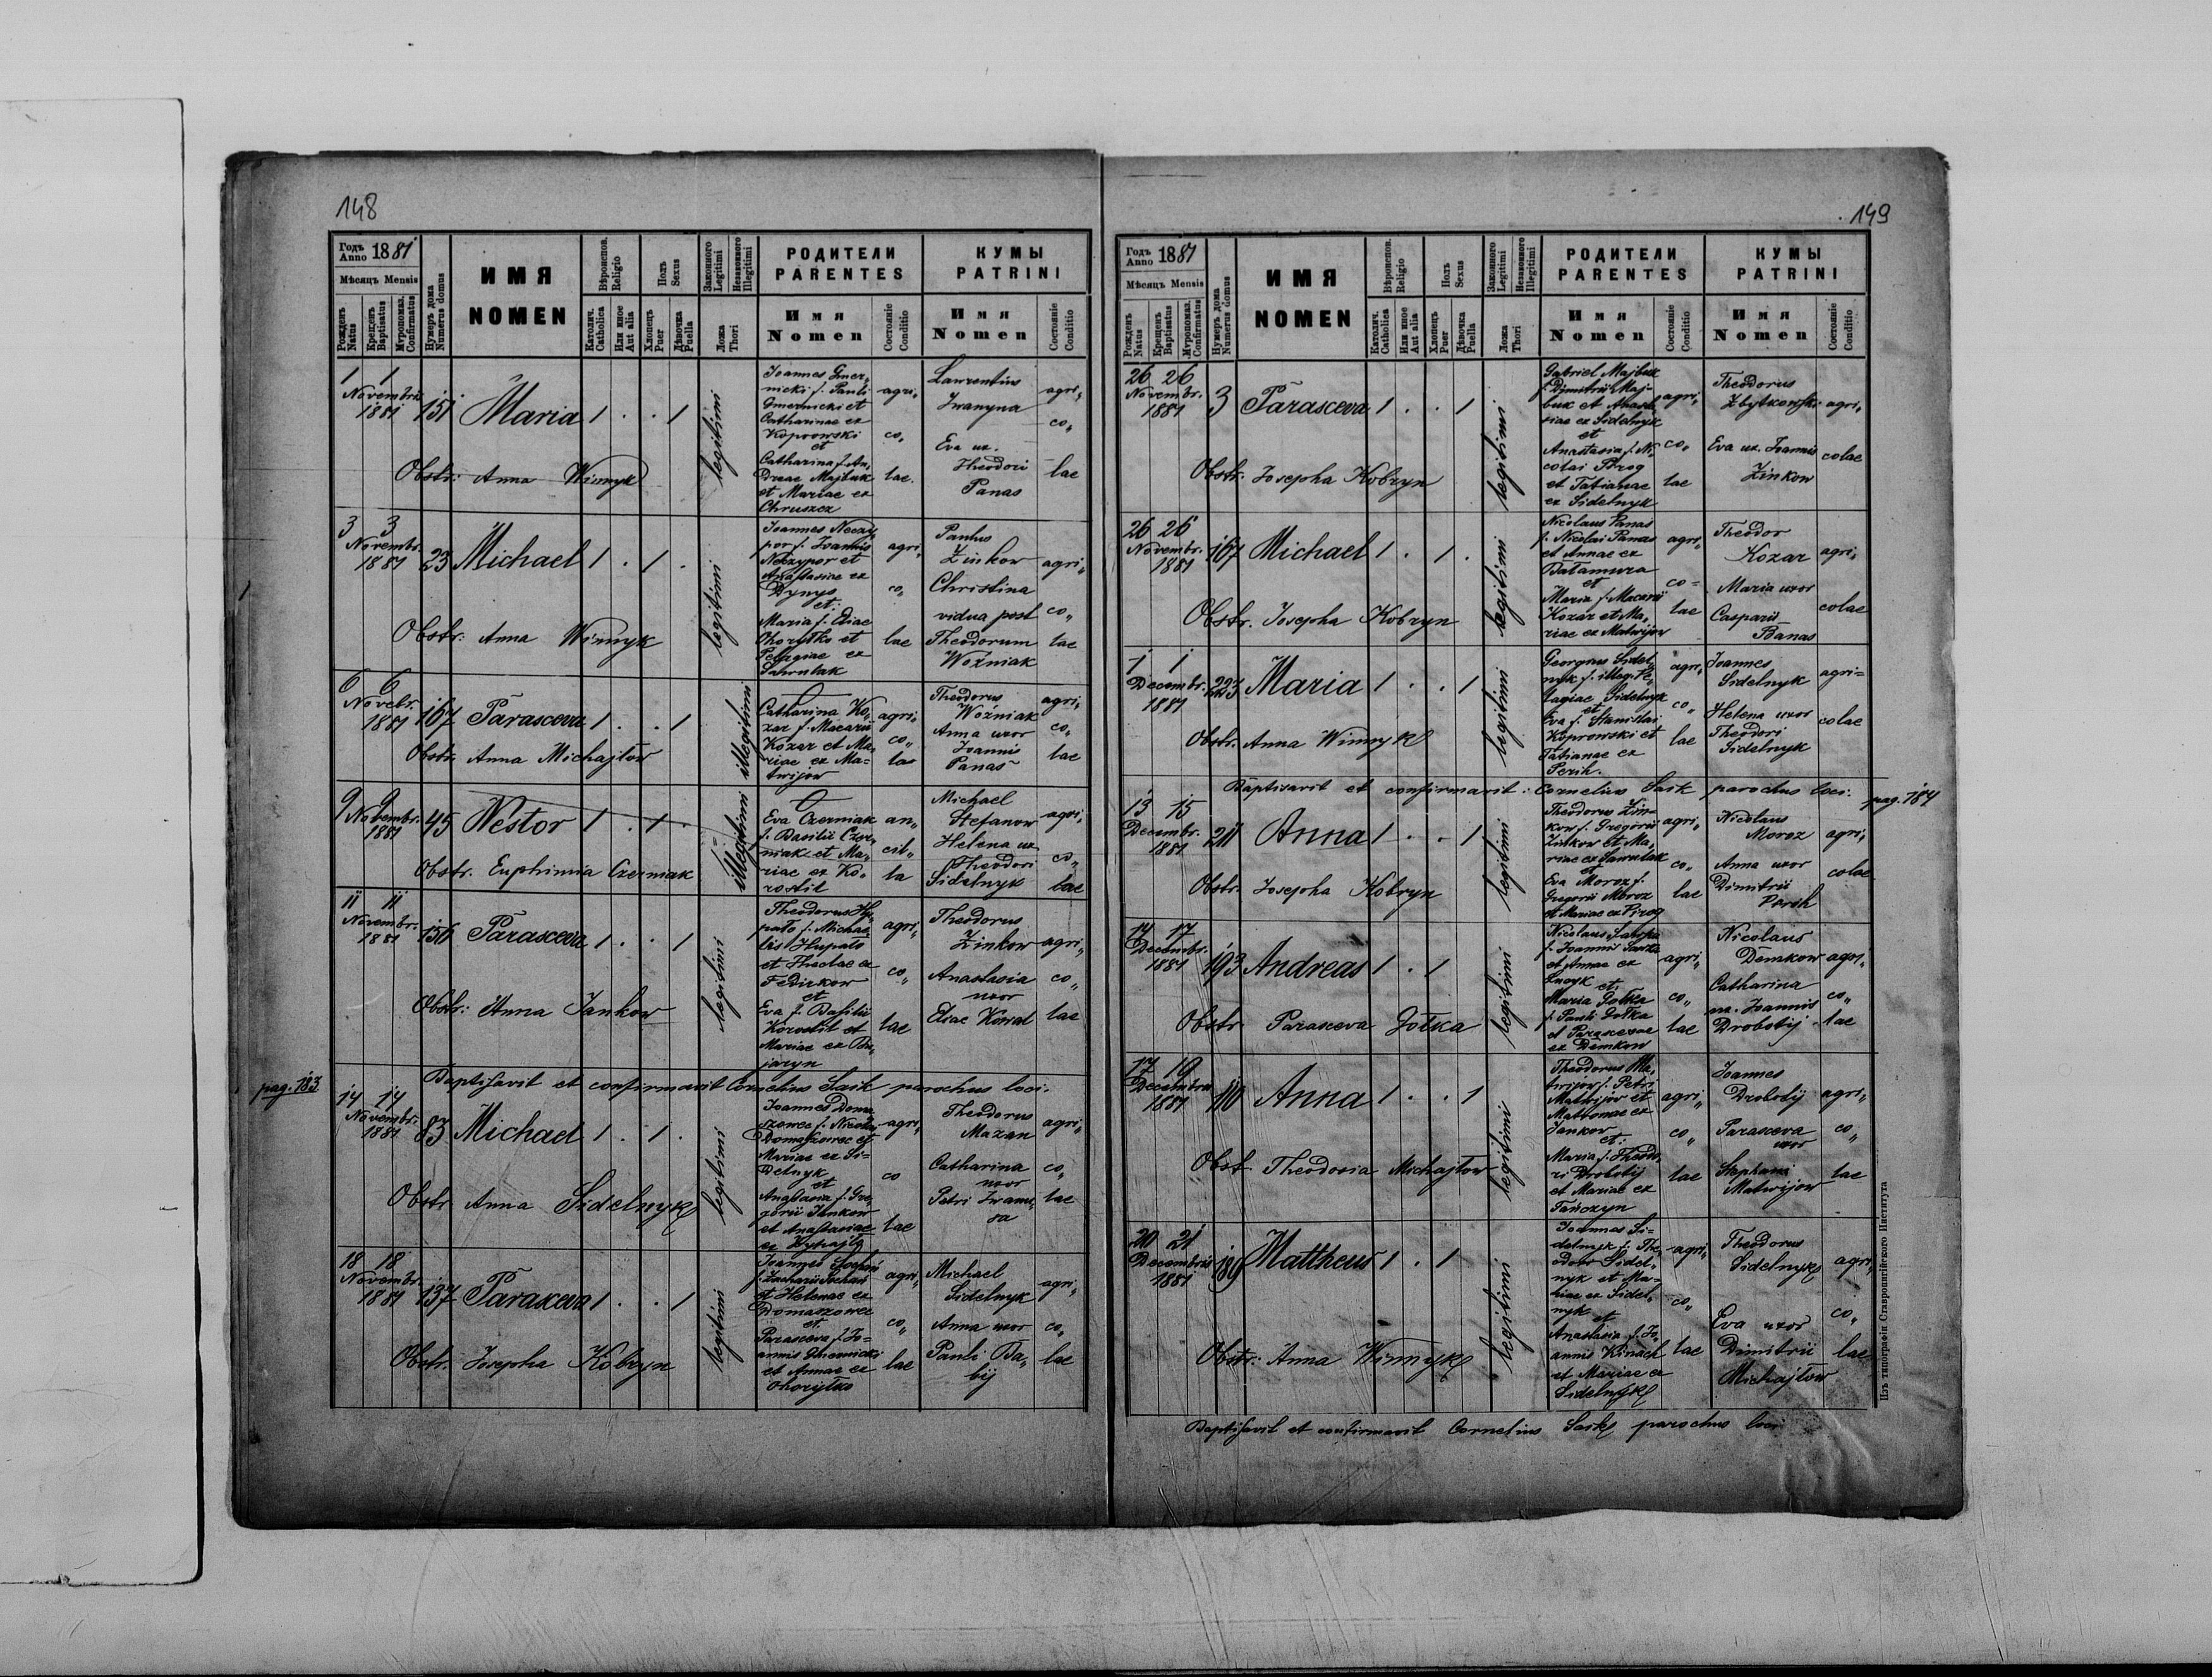 148
Годъ Anno 1881
Мѣсяцъ Mensis
Рожденъ Natus
Крещенъ Baptisatus
Муропомаз. Confirmatus
Нумеръ дома Numerus domus
ИМЯ
NOMEN
Вѣроиспов. Religio
Католич. Catholica
Или иное Aut alia
Полъ Sexus
Хлопецъ Puer
Дѣвочка Puella
Законного Legitimi
Незаконного Illegitimi
Ложа Thori
РОДИТЕЛИ
PARENTES
Имя Nomen
Состояніе Conditio
КУМЫ
PATRINI
Имя Nomen
Состояніе Conditio
1 1
Novembris
1881
151 Maria 1 . . 1
legitimi
Joannes Gmer„
nicki f. Pauli
Gmernicki et
Catharinae ex
Koprowski
et
Catharina f. An„
dreae Majbuk
et Mariae ex
Chruszcz
agri„
co„
lae
Laurentius
Iwanyna
Eva ux.
Theodori
Panas
agri„
co„
lae
Obstr: Anna Winnyk
3 3
Novembr.
1881
23 Michael 1 . 1 .
legitimi
Joannes Neczy„
por f. Joannis
Neczypor et
Anastasiae ex
Dynys
et:
Maria f. Eliae
Chorytko et
Pelagiae ex
agri„
co„
lae
Paulus
Zinkow
Christina
vidua post
Theodorum
Woźniak
agri„
co„
lae
Obstr: Anna Winnyk
6 6
Novebr.
1881
167 Parasceva 1 . . 1
illegitimi
Catharina Ko„
zar f. Macarii
Kozar et Ma„
riae ex Ma=
twijow
agri„
co„
lae
Theodorus
Woźniak
Anna uxor
Joannis
Panas
agri„
co„
lae
Obstr. Anna Michajłow
9 9
Novembr.
1881
45 Nestor 1 . 1 .
illegitimi
Eva Czerniak
f. Basilii Czer„
niak et Ma„
riae ex Ko„
rostil
an„
cil„
la
Michael
Stefanow
Helena ux
Theodori
Sidelnyk
agri„
co„
lae
Obstr. Euphimia Czerniak
11 11
Novembr.
1881
156 Parasceva 1 . . 1
legitimi
Theodorus Hu„
pało f. Michae„
lis Hupało
et Theclae ex
Fedirkow
et
Eva f. Basilii
Korostil et
Mariae ex Bu„
jaryn
agri„
co„
lae
Theodorus
Zinkow
Anastasia
uxor
Eliae Kowal
agri„
co„
lae
Obstr: Anna Jankow
pag. 183
Baptisavit et confirmavit Cornelius Sask parochus loci.
14 14
Novembr.
1881
83 Michael 1 . 1 .
legitimi
Joannes Doma„
szowec f. Nicolai
Domaszowec et
Mariae ex Si=
delnyk
et
Anastasia f. Gre„
gorii Jankow
et Anastasiae
agri„
co
lae
Theodorus
Mazan
Catharina
uxor
Petri Iwanu„
sa
agri„
co„
lae
Obstr. Anna Sidelnyk
18 18
Novembr.
1881
137 Parasceva 1 . . 1
legitimi
et Helenae ex
Domaszowec
et
Parasceva f. Jo=
annis Gmernicki
et Annae ex
Chorytko
agri„
co„
lae
Michael
Sidelnyk
Anna uxor
Pauli Ba„
bij
agri„
co„
lae
Obstr: Josepha Kobryn
149
Годъ Anno 1881
Мѣсяцъ Mensis
Рожденъ Natus
Крещенъ Baptisatus
Муропомаз. Confirmatus
Нумеръ дома Numerus domus
ИМЯ
NOMEN
Вѣроиспов. Religio
Католич. Catholica
Или иное Aut alia
Полъ Sexus
Хлопецъ Puer
Дѣвочка Puella
Законного Legitimi
Незаконного Illegitimi
Ложа Thori
РОДИТЕЛИ
PARENTES
Имя Nomen
Состояніе Conditio
КУМЫ
PATRINI
Имя Nomen
Состояніе Conditio
26 26
Novembr.
1881
3 Parasceva 1 . . 1
legitimi
Gabriel Majbuk
f. Dimitrii Maj„
buk et Anasta„
siae ex Sidelnyk
et
Anastasia f. Ni„
colai Pirog
et Tatianae
ex Sidelnyk
agri„
co„
lae
Theodorus
Zbytkowski
Eva ux. Joannis
Zinkow
agri„
colae
Obstr. Josepha Kobryn
26 26
Novembr.
1881
167 Michael 1 . 1 .
legitimi
Nicolaus Panas
f. Nicolai Panas
et Annae ex
Bałamura
et
Maria f. Macarii
Kozar et Ma„
riae ex Matwijow
agri„
co=
lae
Theodor
Kozar
Maria uxor
Casparis
Banas
agri„
colae
Obstr. Josepha Kobryn
1 1
Decembr.
1881
223 Maria 1 . . 1
legitimi
Georgius Sidel„
nyk f. illeg. Pe„
lagiae Sidelnyk
et
Eva f. Stanislai
Koprowski et
Tatianae ex
Perih.
agri„
co„
lae
Joannes
Sidelnyk
Helena uxor
Theodori
Sidelnyk
agri=
colae
Obstr. Anna Winnyk
Baptisavit et confirmavit: Cornelius Sask parochus loci.
pag. 184
13 15
Decembr.
1881
211 Anna 1 . . 1
legitimi
Theodorus Zin„
kow f. Gregorii
Zinkow et Ma„
et
Eva Moroz f.
Gregorii Moroz
et Mariae ex Pirog
agri„
co„
lae
Nicolaus
Moroz
Anna uxor
Dimitrii
Perih
agri„
colae
Obstr. Josepha Kobryn
14 17
Decembr.
1881
193 Andreas 1 . 1
legitimi
et Annae ex
et
Maria Gołka
f. Pauli Gołka
et Parascevae
ex Demkow
agri„
co„
lae
Nicolaus
Demkow
Catharina
ux. Joannis
Drobotij
agri„
co„
lae
Obstr. Parasceva Gołka
17 19
Decembris
1881
110 Anna 1 . . 1
legitimi
Theodorus Ma„
twijow f. Petri
Matwijow et
Matronae ex
Jankow
et:
Maria f. Theodo„
ri Drobotij
et Mariae ex
Tańczyn
agri„
co„
lae
Joannes
Drobotij
Parasceva
uxor
Stephani
Matwijow
agri„
co„
lae
Obst. Theodosia Michajłow
20 21
Decembris
1881
189 Mattheus 1 . 1
legitimi
Joannes Si=
delnyk f. The„
odori Sidel„
nyk et Ma=
riae ex Sidel„
nyk
et
Anastasia f. Jo„
annis Kinach
et Mariae ex
Sidelnyk
agri„
co„
lae
Theodorus
Sidelnyk
Eva uxor
Dimitrii
Michajłow
agri„
co„
lae
Obstr: Anna Winnyk
Baptisavit et confirmavit Cornelius Sask parochus loci
Изъ типографіи Ставропигійского Института